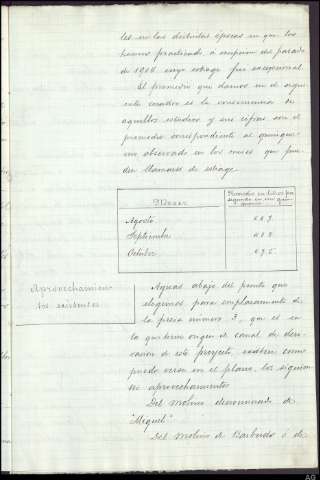 les en las distintas épocas en que los
hemos practicado, a excepcion del pasado
de 1906 cuyo estiage fue excepcional.
El promedio que damos en el adjunto
estado es la consecuencia de
aquellos estudios y sus cifras son el
promedio correspondiente al quinque-
nio observado en los meses que pue-
den llamarse de estiage.
Meses
Promedio en litros por
segundo en un quin-
quenio
Agosto
Septiembre
Octubre
Aprovechamien
tos existentes
Aguas abajo del punto que
elegimos para emplazamiento de
la presa número 3, que es en
la que tiene origen el canal de deri-
vacion de este proyecto, existen como
puede verse en el plano, los siguien-
tes aprovechamientos
Del Molino denominado de
"Miquel"
Del Molino de Barbudo ó de